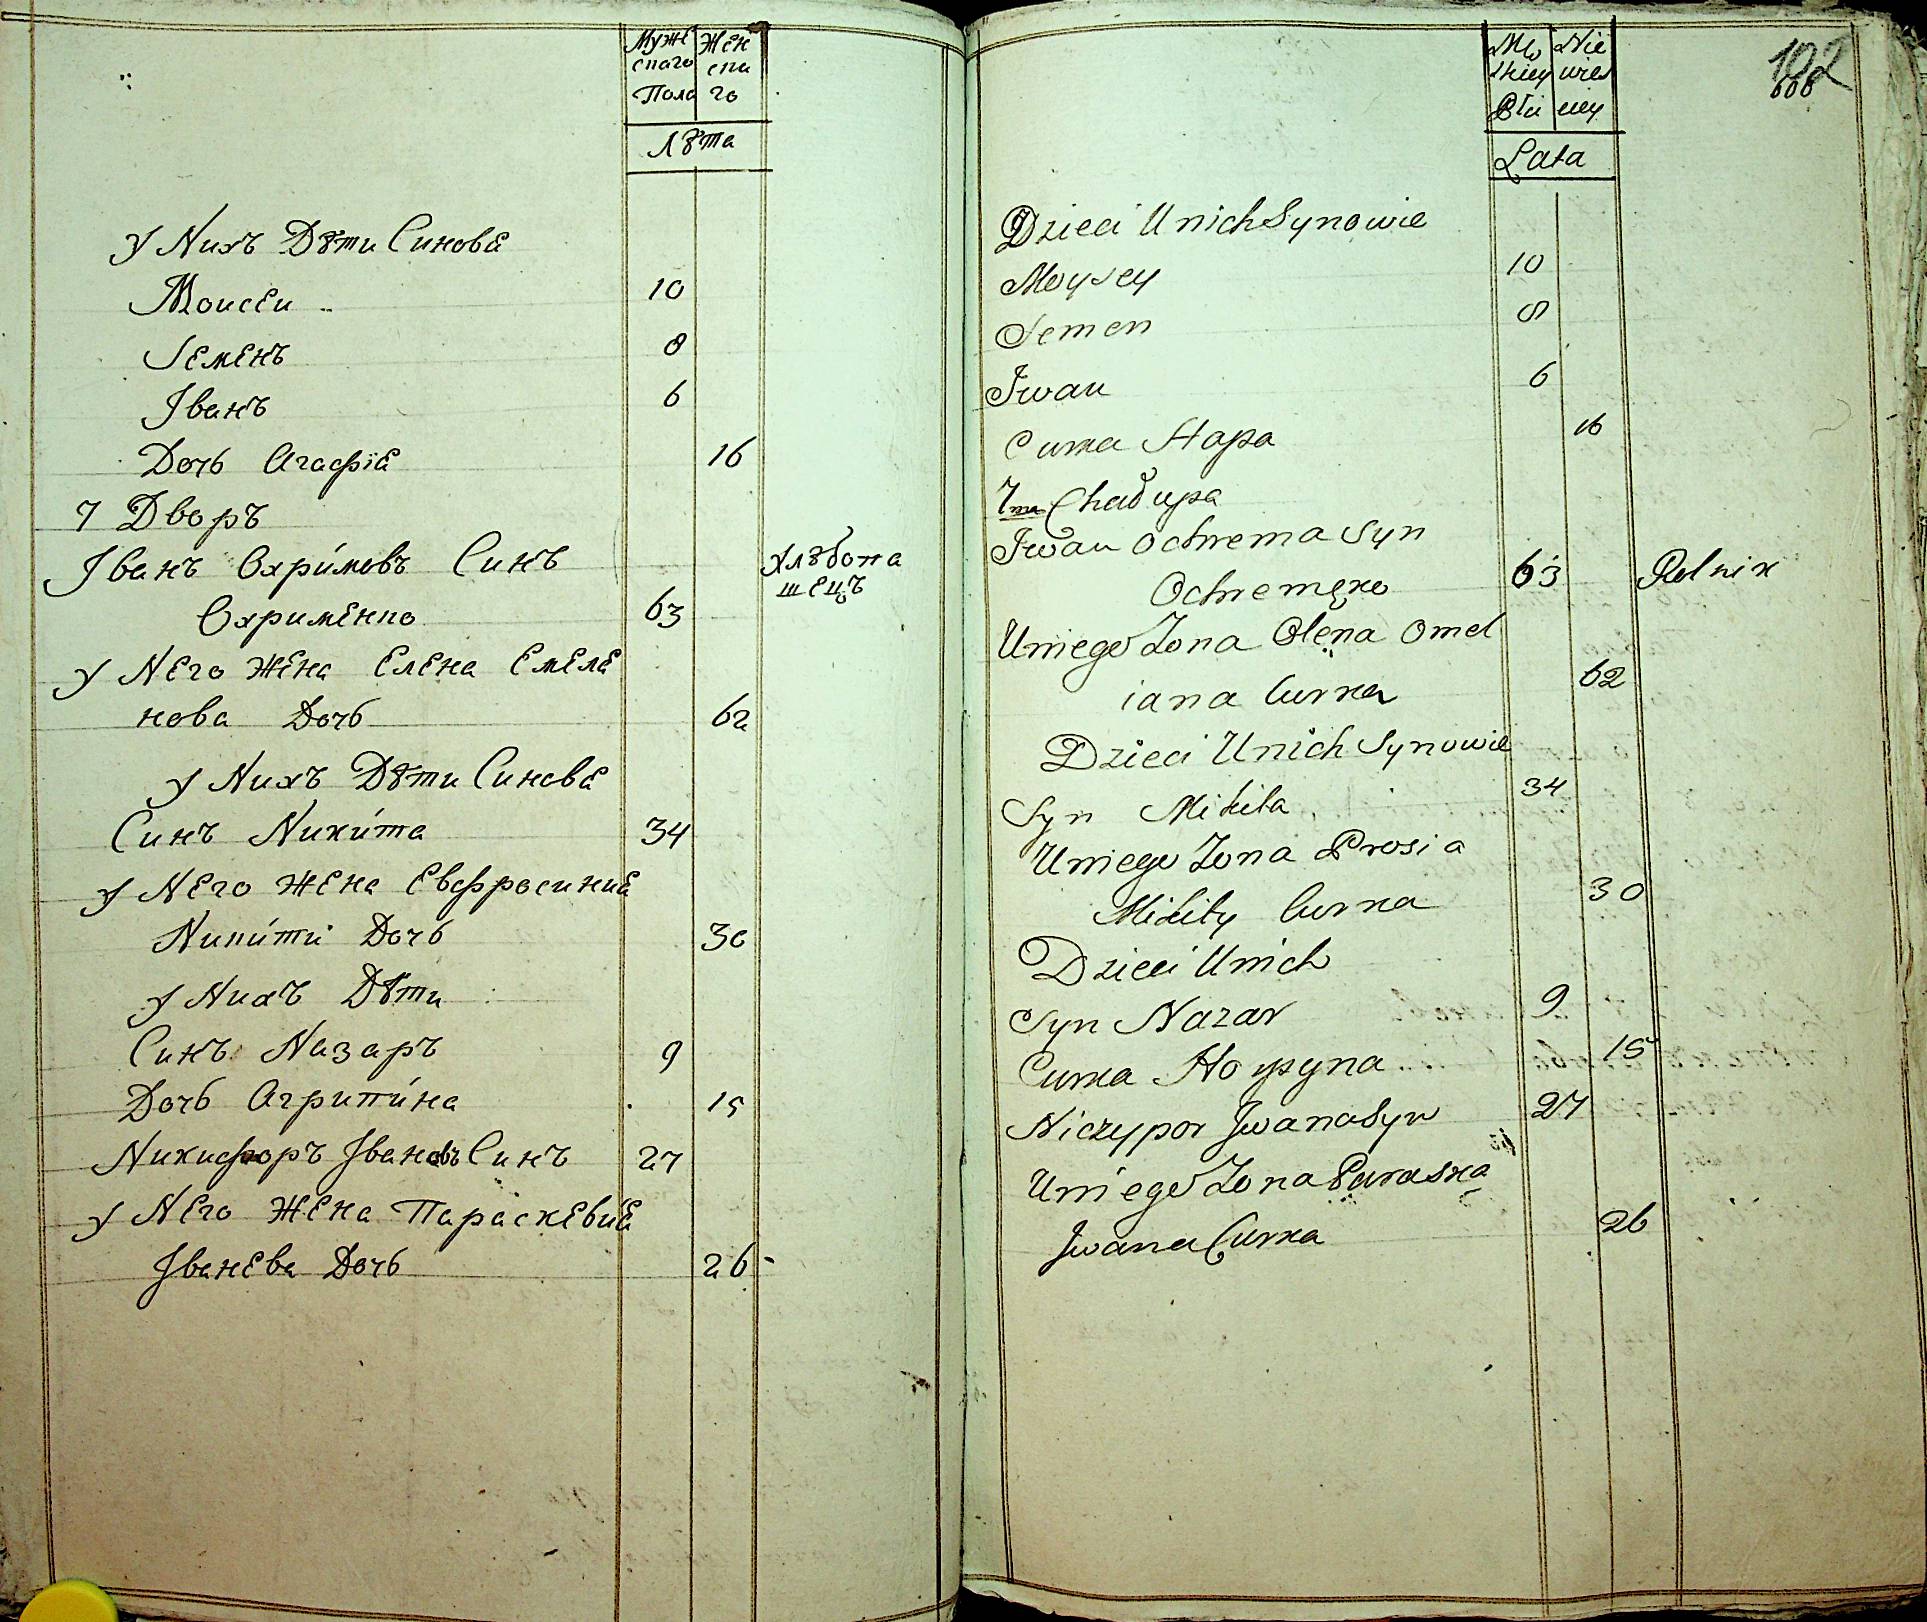 Муже Жен
скаго ска
Пола го
Лѣта
У Нихъ Дѣти Синове
Моисеи 10
Семенъ 8
Іванъ 6
Дочь Агафіе 16
7 Дворъ
Іванъ Охрімовъ Синъ Хлѣбопа
шецъ
Охрименко 63
У Него Жена Елена Емеле
нова Дочь 62
У Нихъ Дѣти Синове
Синъ Никита 34
У Него Жена Евфросиние
Никити Дочь 30
У Нихъ Дѣти
Синъ Назаръ 9
Дочь Агрипина 15
Никифоръ Івановъ Синъ 27
У Него Жена Параскевие
Іванева Дочь 26
102
Mę Nie
skiey wies
Płci ciey
Lata
Dzieci Unich Synowie
Moysey 10
Semen 8
Iwan 6
Curka Hapa 16
7ma Chałupa
Iwan Ochrema Syn
Ochremęko 63 Rolnik
Uniego Zona Olena Omel
iana Curka 62
Dzieci Unich Synowie
Syn Mikita 34
Uniego Zona Prosia
Mikity Curka 30
Dzieci Unich
Syn Nazar 9
Curka Horpyna 15
Niczypor Jwana Syn 27
Uniego Zona Paraska
Jwana Curka 26